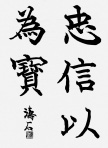 忠信以
為寶
海石